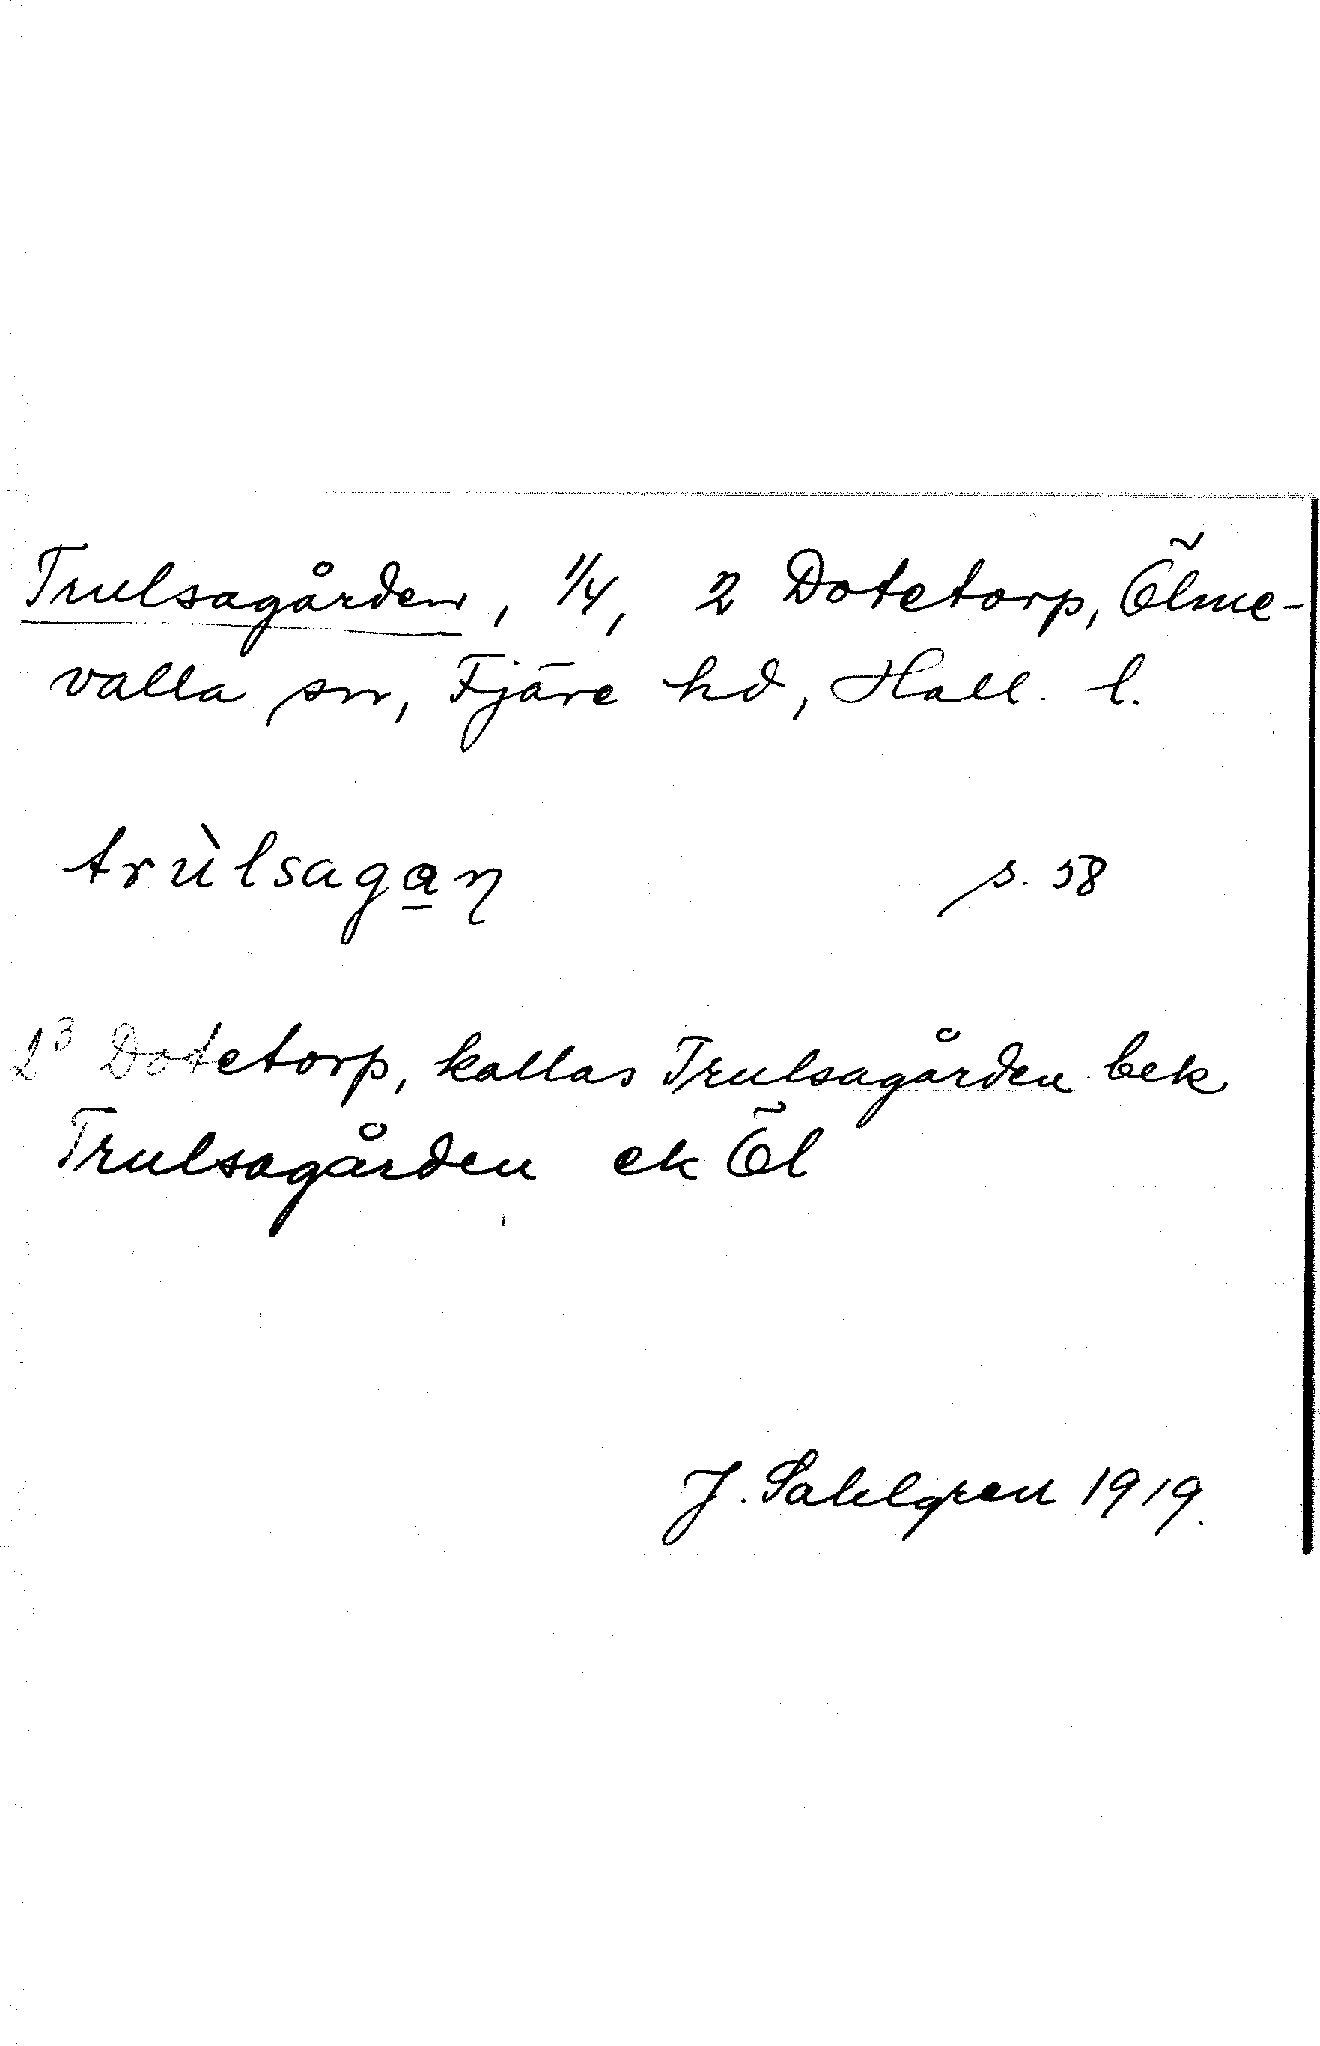 Trulsagården, 1/4, 2 Dotetorp, Ölme-
valla sn, Fjäre hd, Hall. l.
trùlsaga̲ŋ s. 58
2³ Dotetorp, kallas Trulsagården bek
Trulsagården ek Öl
J. Sahlgren 1919.